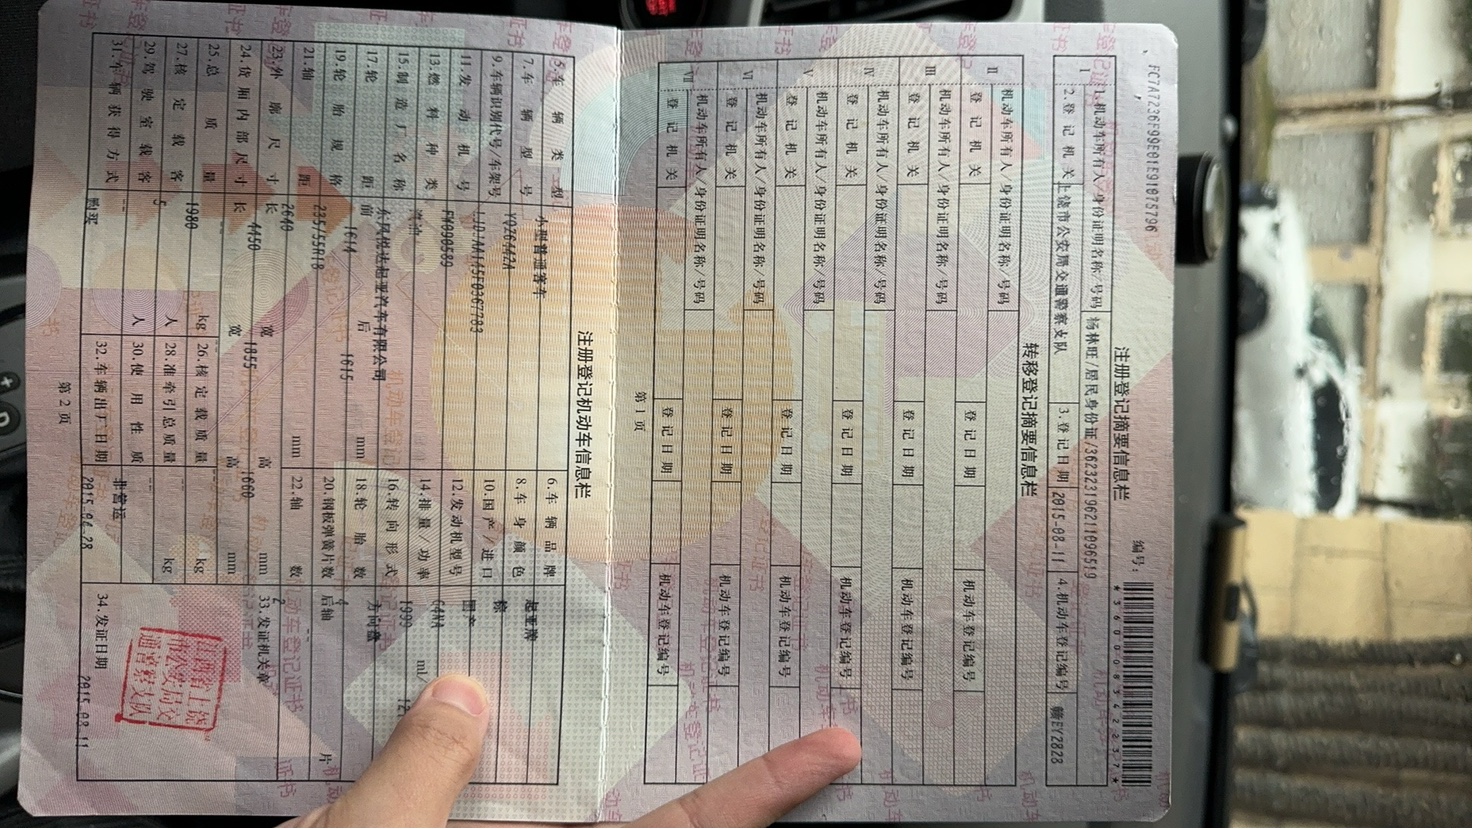 FC7A7236F99E01E9107579D6
注册登记摘要信息栏
编号：
*360008542237*
Ⅰ 1.机动车所有人/身份证明名称/号码 杨林旺/居民身份证/362323196211096519
2.登记机关 上饶市公安局交通警察支队 3.登记日期 2015-08-11 4.机动车登记编号 赣EY2828
转移登记摘要信息栏
Ⅱ 机动车所有人/身份证明名称/号码
登记机关 登记日期 机动车登记编号
Ⅲ 机动车所有人/身份证明名称/号码
登记机关 登记日期 机动车登记编号
Ⅳ 机动车所有人/身份证明名称/号码
登记机关 登记日期 机动车登记编号
Ⅴ 机动车所有人/身份证明名称/号码
登记机关 登记日期 机动车登记编号
Ⅵ 机动车所有人/身份证明名称/号码
登记机关 登记日期 机动车登记编号
Ⅶ 机动车所有人/身份证明名称/号码
登记机关 登记日期 机动车登记编号
第1页
注册登记机动车信息栏
5.车辆类型 小型普通客车 6.车辆品牌 起亚牌
7.车辆型号 8.车身颜色
9.车辆识别代号/车架号 10.国产/进口 国产
11.发动机号 FW090589 12.发动机型号 G4NA
13.燃料种类 汽油 14.排量/功率 1999 ml/
15.制造厂名称 东风悦达起亚汽车有限公司 16.转向形式 方向盘
17.轮距 前 1614 后 1615 mm 18.轮胎数 4
19.轮胎规格 235/55R18 20.钢板弹簧片数 后轴 -- 片
21.轴距 2640 mm 22.轴数 2
23.外廓尺寸 长 4450 宽 1855 高 1660 mm 33.发证机关章
24.货厢内部尺寸 长 宽 高 mm
25.总质量 1980 kg 26.核定载质量 -- kg
27.核定载客 5 人 28.准牵引总质量 -- kg
29.驾驶室载客 -- 人 30.使用性质 非营运
31.车辆获得方式 购买 32.车辆出厂日期 2015-04-28 34.发证日期 2015-08-11
第2页